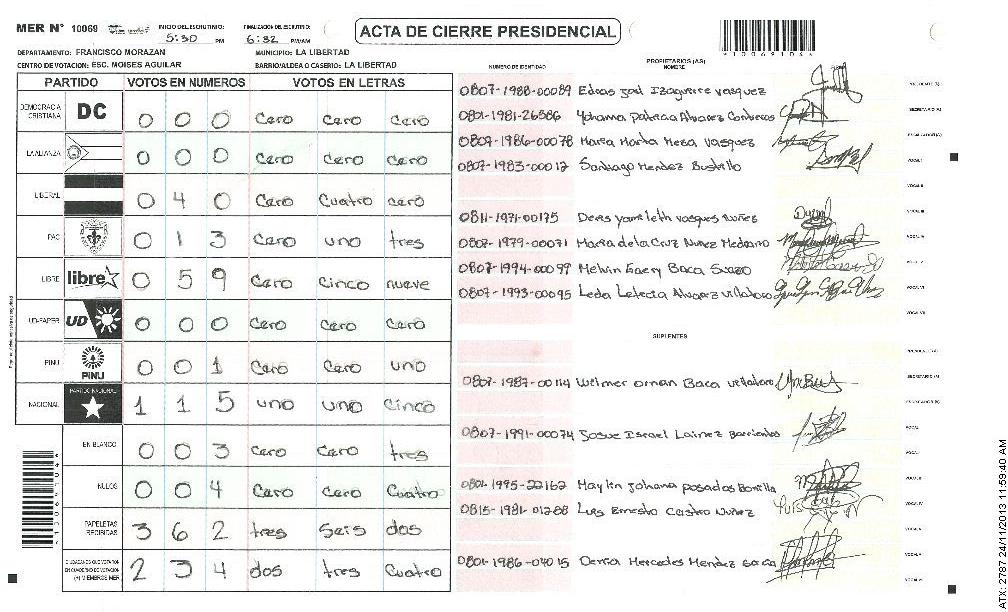 MER N° 10069 INICIO DEL ESCRUTINIO: 5:30 PM FINALIZACION DEL ESCRUTINIO: 6:32 PM/AM
ACTA DE CIERRE PRESIDENCIAL
DEPARTAMENTO: FRANCISCO MORAZAN MUNICIPIO: LA LIBERTAD
CENTRO DE VOTACION: ESC. MOISES AGUILAR BARRIO/ALDEA O CASERIO: LA LIBERTAD
PARTIDO VOTOS EN NUMEROS VOTOS EN LETRAS
DEMOCRACIA CRISTIANA DC 0 0 0 cero cero cero
LA ALIANZA 0 0 0 cero cero cero
LIBERAL 0 4 0 cero cuatro cero
PAC 0 1 3 cero uno tres
LIBRE libre 0 5 9 cero cinco nueve
UD-FAPER UD 0 0 0 cero cero cero
PINU PINU 0 0 1 cero cero uno
NACIONAL PARTIDO NACIONAL 1 1 5 uno uno cinco
EN BLANCO 0 0 3 cero cero tres
NULOS 0 0 4 cero cero cuatro
PAPELETAS RECIBIDAS 3 6 2 tres seis dos
CIUDADANOS QUE VOTARON EN CUADERNO DE VOTACION (+) MIEMBROS MER 2 3 4 dos tres cuatro
NUMERO DE IDENTIDAD PROPIETARIOS (AS) NOMBRE
0807-1988-00089 Izaguirre Vasquez PRESIDENTE (A)
0801-1981-26586 Yohama Patricia Alvarez Contreras SECRETARIO (A)
0807-1986-00078 Maria Marta Meza Vasquez ESCRUTADOR (A)
0807-1983-00012 Santiago Mendez Bustillo VOCAL I
VOCAL II
0811-1971-00175 Vasques Nuñez VOCAL III
0807-1979-00071 Maria de la Cruz Nunez Medrano VOCAL IV
0807-1994-00099 Melvin Baca Suazo VOCAL V
0807-1993-00095 Leda Leticia Alvarez VOCAL VI
VOCAL VII
SUPLENTES
PRESIDENTE (A)
0807-1987-00114 Welmer Baca SECRETARIO (A)
ESCRUTADOR (A)
0807-1991-00074 Josue Israel Lainez Barrientos VOCAL I
VOCAL II
0801-1995-22162 Maylin Johana Posadas Bonilla VOCAL III
0815-1981-01288 Luis Ernesto Castro Nuñez VOCAL IV
VOCAL V
0801-1986-04015 Mercedes Mendez VOCAL VI
VOCAL VII
ATX: 2787 24/11/2013 11:59:40 AM